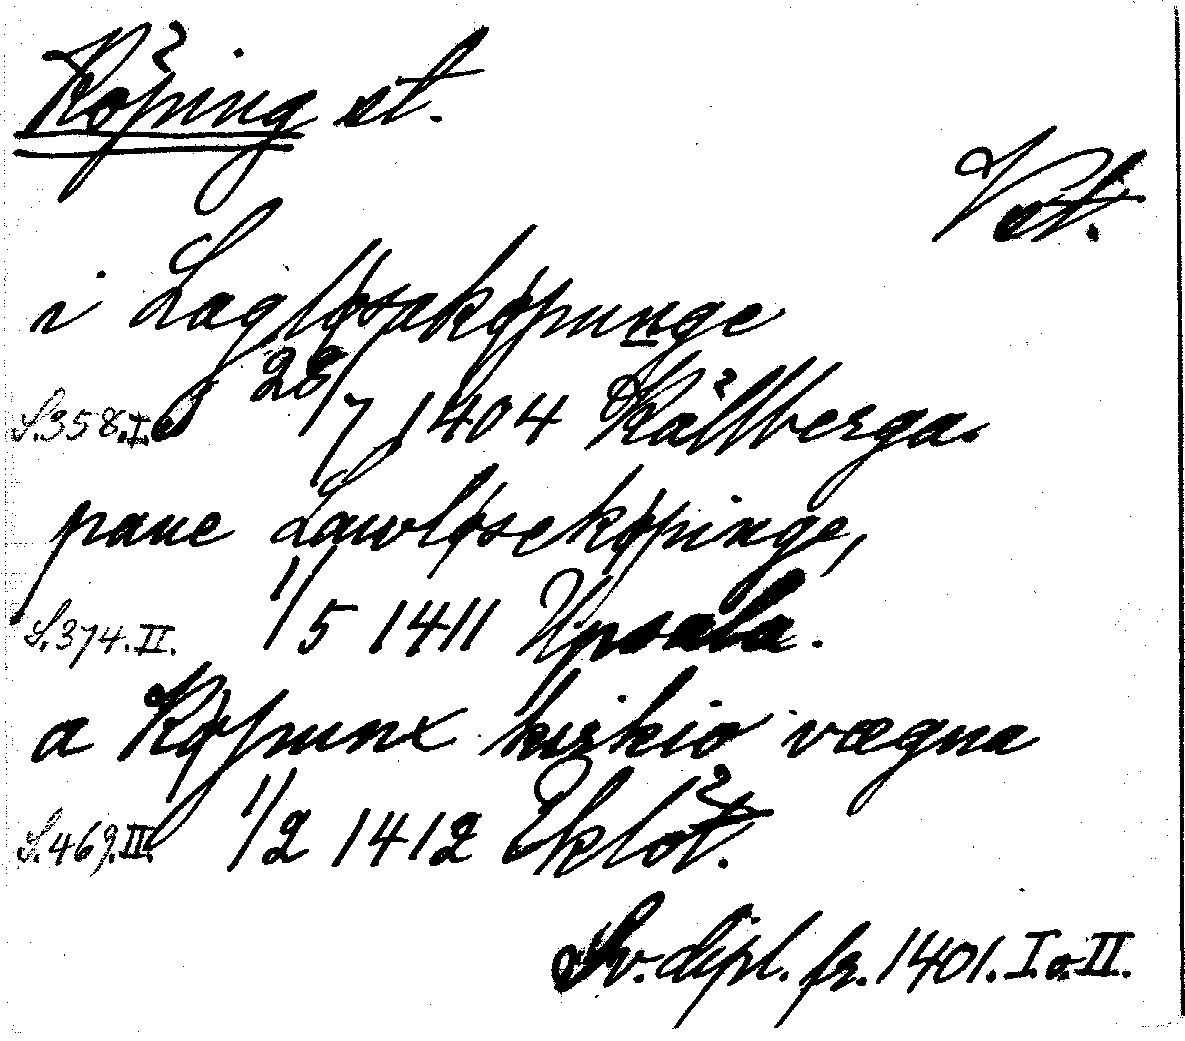 Köping st.
Vst.
i Lagløsakøpunge
S.358.I. 28/7 1404 Källberga.
pane Lawløsekøpinge,
S.374.II. 1/5 1411 Upsala.
a Køpunx kirkio vægna
S.469.III. 1/2 1412 Eklöt.
Sv. dipl. fr. 1401. I o. II.